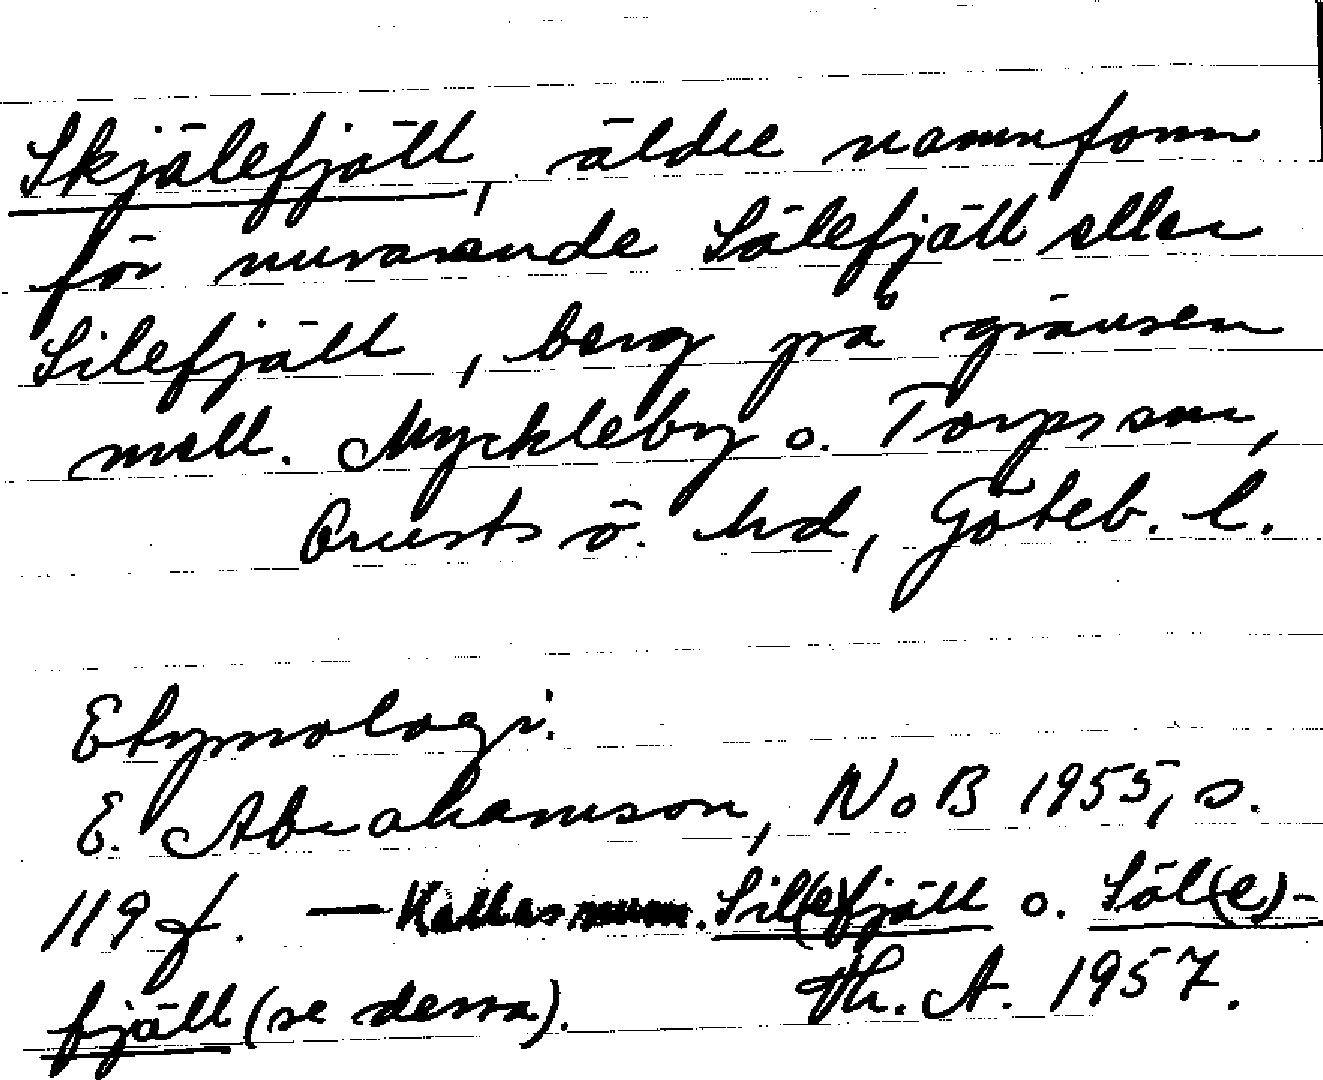 Skjälefjäll, äldre namnform
för nuvarande Sälefjäll eller
Silefjäll, berg på gränsen
mell. Myckleby o. Torps snr,
Orusts ö. hd, Göteb. l.
Etymologi:
E. Abrahamson, NoB 1955, s.
119 f. — Kallas num. Sil(e)fjäll o. Säl(e)-
fjäll (se dessa). Th. A. 1957.